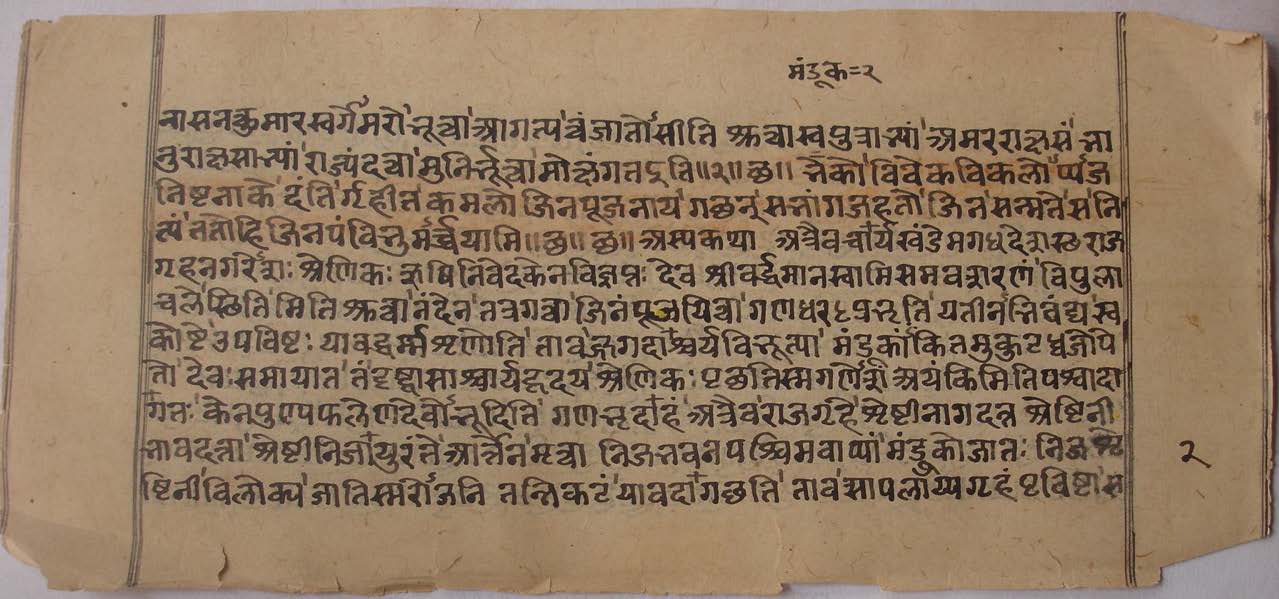 मंडूक=२
नासनत्कुमारस्वर्गेऽमरोऽभूत्वा आगत्य त्वं जातोसीति श्रुत्वा स्वपुत्राभ्यां अमरराक्षस भा
नुराक्षसाभ्यां राज्यं दत्वा मुनिर्भूत्वा मोक्षं गत इति॥२॥छ॥ भेको विवेकविकलो
तिष्टनाके दंतैर्गृहीतकमलो जिनपूजनाय गच्छन् सभां गजहतो जिनसन्मतेः स नि
त्यं ततो हि जिनपं विभुमर्च्चयामि॥छ॥छ॥ अस्य कथा अत्रैवार्यखंडे मगधदेशस्छ राज
गृहनगरे राज्ञाः श्रेणिकः ऋषिनिवेदकेन विज्ञप्तः देव श्रीवर्द्धमानस्वामिसमवशरणं विपुला
चले स्छितमिति श्रुत्वा नंदेन तत्र गत्वा जिनं पूजयित्वा गणधरप्रभृति यतीनभिवंद्य स्व
कोष्टे उपविष्टः यावद्धर्म्मं शृणोति तावज्जगदाश्चर्यविभूत्या मंडूकांकितमुकुटध्वजोपे
तो देवः समायात तं दृष्ट्वा साश्चर्यहृदय श्रेणिकः पृच्छतिस्म गणेशं अयं किमिति पश्चादा
गतः केन पुण्यफलेण देवोभूदिति गणभृदाह अत्रैव राजगृहे श्रेष्टी नागदत्त श्रेष्टिनी
भावदत्ता श्रेष्टी निजायुरंते आर्त्तेन मृत्वा निजभवनपश्चिमवाप्यां मंडूको जातः निज श्रे
ष्टिनीं विलोक्य जातिस्मरोजनि तन्निकटं यावदागच्छति तावत्सा पलाय्य गृहं प्रविष्टा स
२